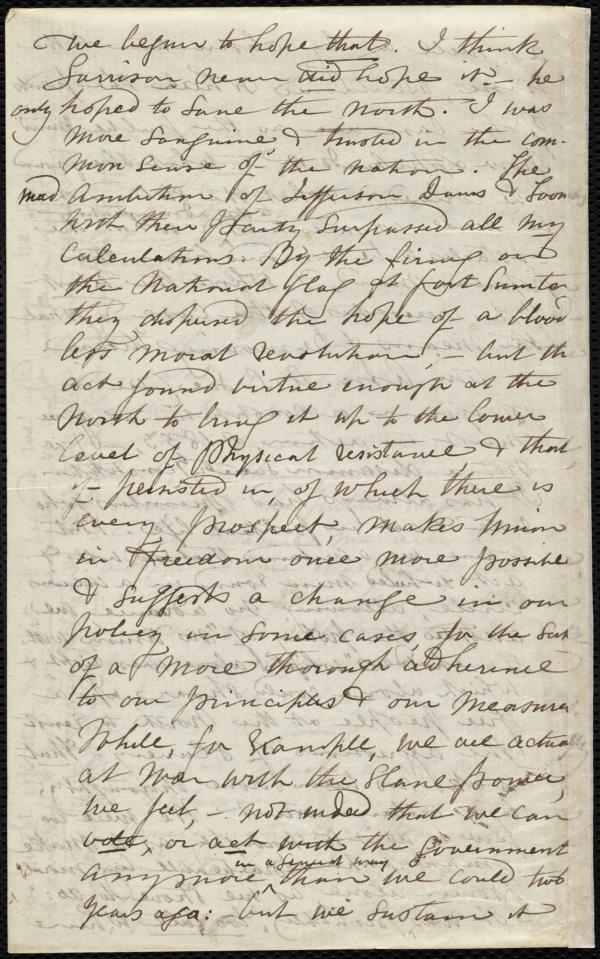 we begun to hope that. I think
Garrison never did hope it – he
only hoped to save the North. I was
more sanguine & trusted in the com-
mon sense of the nation. The
mad ambition of Jefferson Davis &
with their party surpassed all my
calculations. By the firing on
the National flag at fort Sumter
they dispersed the hope of a blood
less moral revolution, – but th
act found virtue enough at the
North to bring it up to the lower
level of physical resistance, & that,
if persisted in, of which there is
every prospect, makes Union
in Freedom once more possible
& suggests a change in our
policy in some cases, for the sak
of a more thorough adherence
to our principles & our measures
While, for example, we are actually
at war with the Slave power,
we feel, – not indeed that we can
vote, or act with the government
in a general way
anymore than we could two
years ago: – but we sustain it